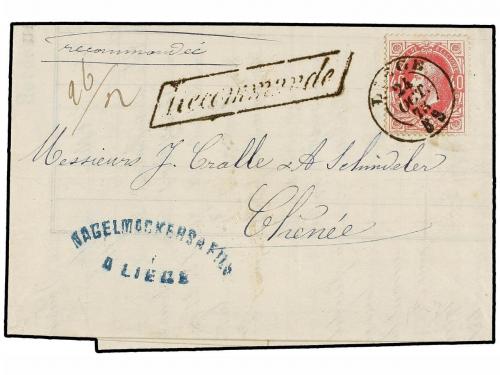 recommandée
26/12
Recommandé
LIEGE
40
Messieurs J. Cralle & A. Schindeler
Chênée
NAGELMACKERS & FILS
A LIEGE